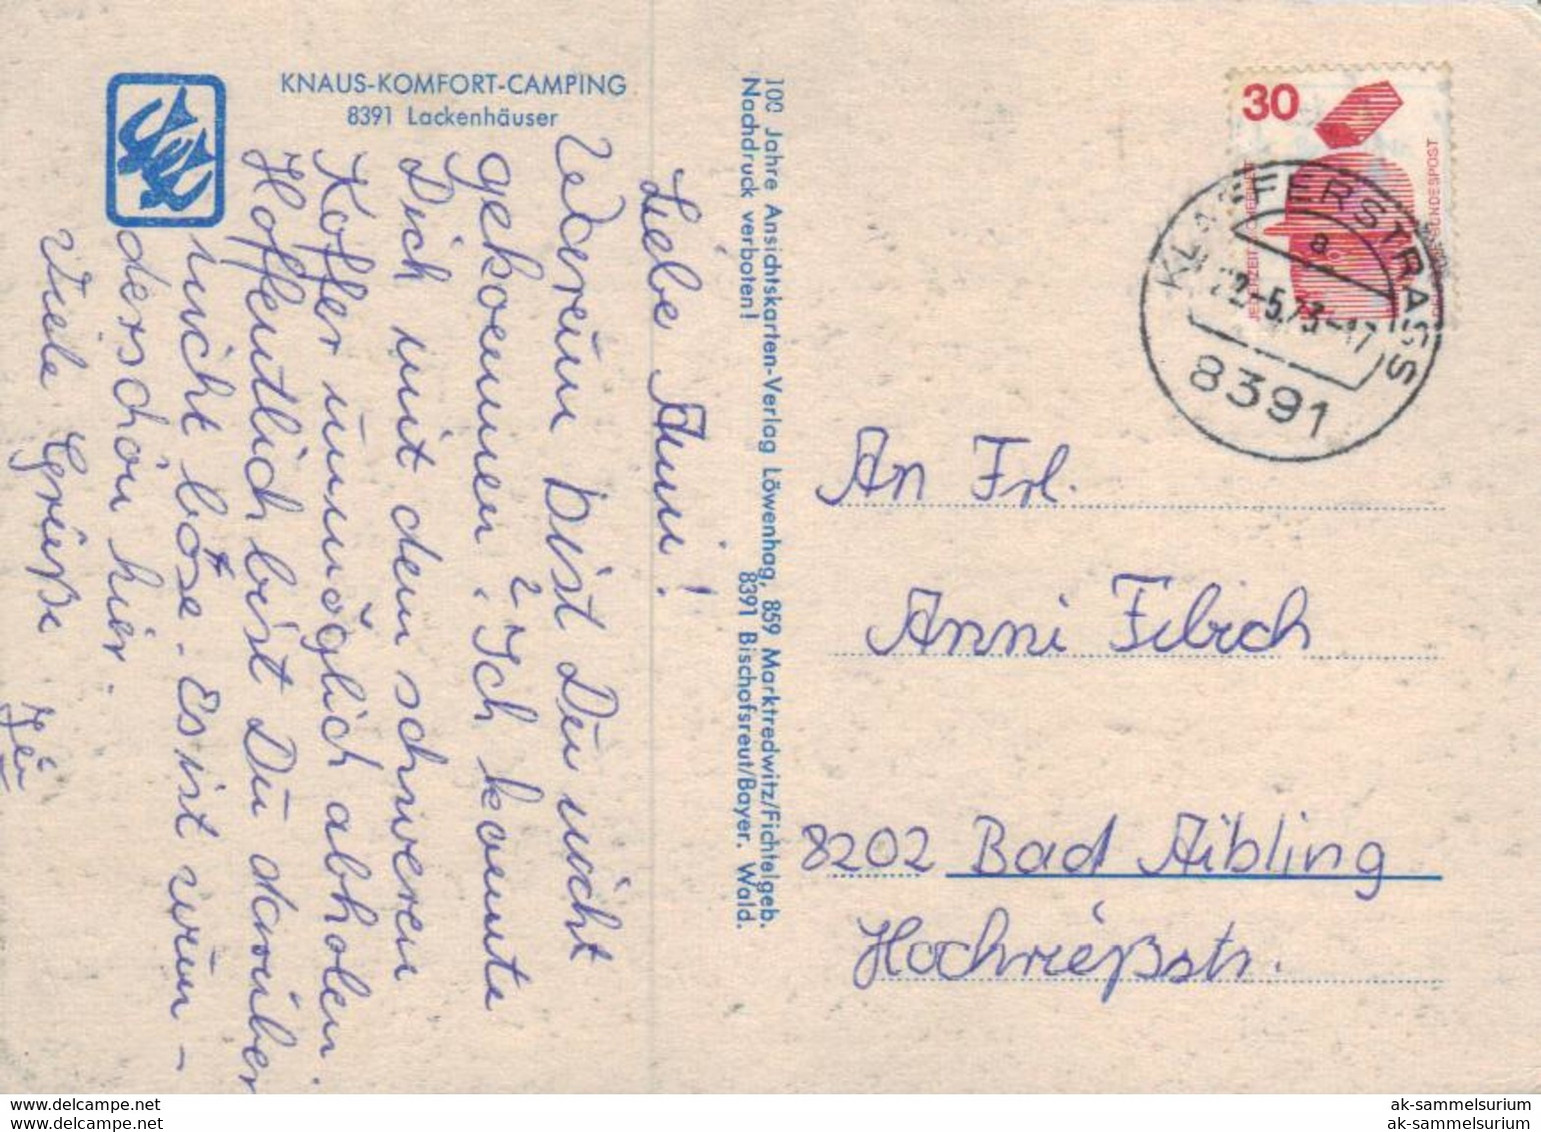 KNAUS-KOMFORT-CAMPING
8391 Lackenhäuser
Liebe Anni!
Warum bist Du nicht
gekommen? Ich konnte
Dich mit dem schweren
Koffer unmöglich abholen.
Hoffentlich bist Du darüber
nicht böse. Es ist wun-
derschön hier.
Viele Grüße
100 Jahre Ansichtskarten-Verlag Löwenhag, 859 Marktredwitz/Fichtelgeb.
Nachdruck verboten! 8391 Bischofsreut/Bayer. Wald.
30
JEDERZEIT SICHERHEIT
DEUTSCHE BUNDESPOST
KLAFFERSTRASS
a
22.-5.73-17
8391
An Frl.
Anni Filrich
8202 Bad Aibling
Hochrießstr.
www.delcampe.net
www.delcampe.net
ak-sammelsurium
ak-sammelsurium